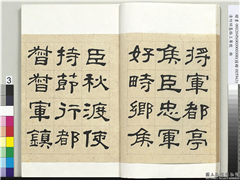 將軍都亭
矦臣忠軍
好畤鄉矦
臣秋渡使
持節行都
督督軍鎮
3